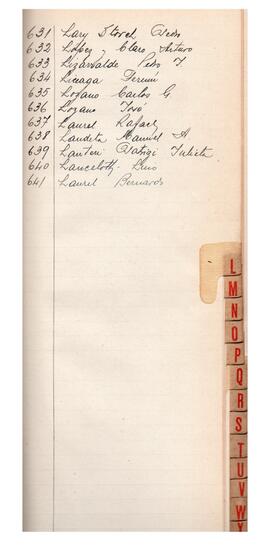 631 Lary Storch
632 López y Claro Arturo
633 Lizarralde Pedro T
634 Liceaga Fermín
635 Lozano Carlos G
636 Lozano José
637 Laurel Rafael
638 Landeta Manuel A
639 Lanteri Julieta
640 Lancelotti Luis
641 Laurel Bernardo
L
M
N
O
P
Q
R
S
T
U
V
W